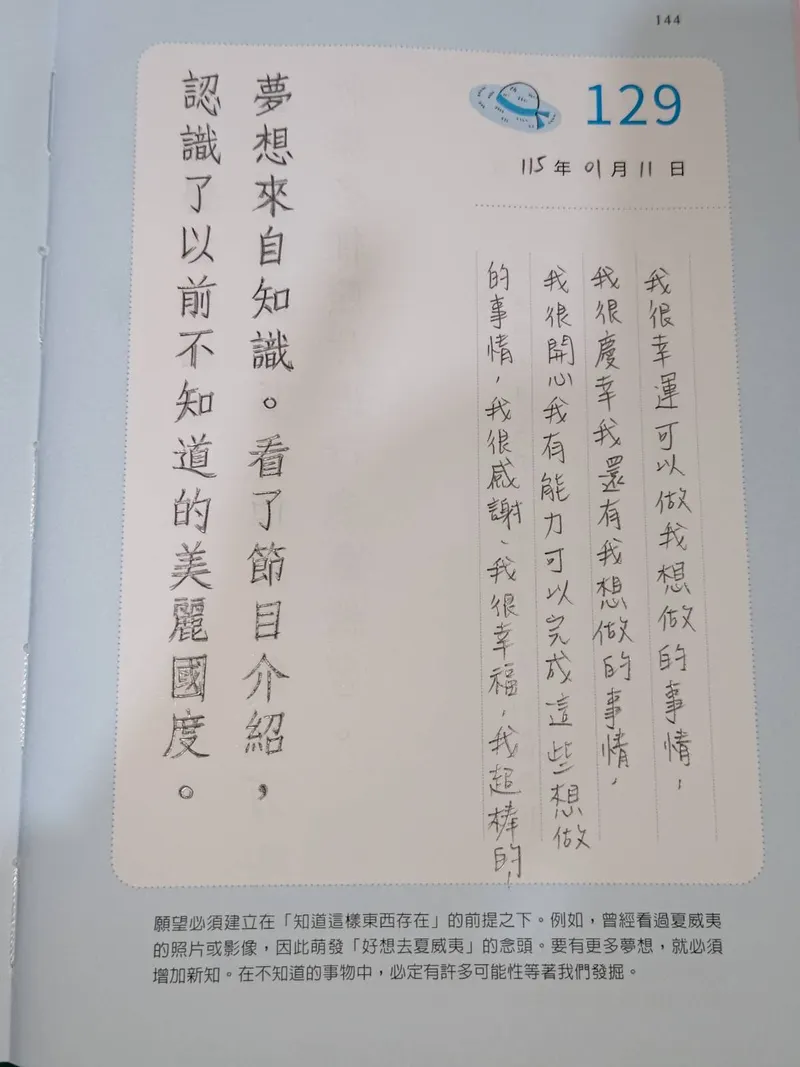 144
129
115年01月11日
我很幸運可以做我想做的事情，
我很慶幸我還有我想做的事情，
我很開心我有能力可以完成這些想做
的事情，我很感謝、我很幸福，我超棒的！
夢想來自知識。看了節目介紹，
認識了以前不知道的美麗國度。
願望必須建立在「知道這樣東西存在」的前提之下。例如，曾經看過夏威夷
的照片或影像，因此萌發「好想去夏威夷」的念頭。要有更多夢想，就必須
增加新知。在不知道的事物中，必定有許多可能性等著我們發掘。